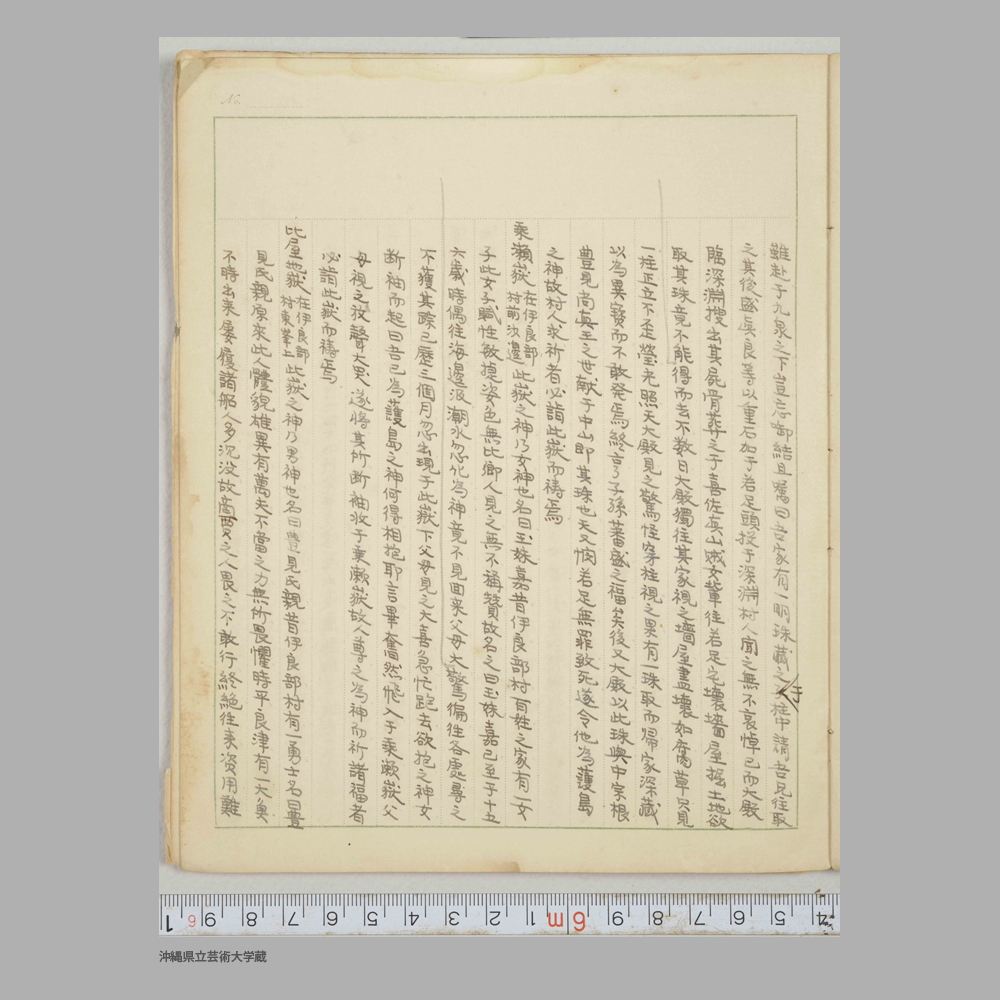 雖赴于九泉之下豈忘御結且嘱曰吾家有一明珠藏之於柱中請吾兄往取
之其後盛眞良等以重石加于君足頭投于深淵村人聞之無不哀悼已而大殿
臨深淵捜出其屍骨葬之于喜佐真山城女輩往君足宅壞墻屋掘土地欲
取其珠竟不能得而去不数日大殿獨往其家視之墻屋盡壞如腐草只見
一柱正立不歪瑩光照天大殿見之驚怪穿柱視之果有一珠取而帰家深藏
以為異寶而不敢発焉終享子孫蕃盛之福矣後又大殿以此珠與中宗根
豊見尚真王之世献于中山即其珠也天又憫君足無罪致死遂令他為護島
之神故村人求祈者必詣此嶽而禱焉
乗瀬嶽 在伊良部村前次邊 此嶽之神乃女神也名曰玉妹嘉昔伊良部村百姓之家有一女
子此女子職性敏捷姿色無比鄉人見之無不稱賛故名之曰玉妹嘉已至于十五
六歳時偶往海邊汲潮水忽化為神竟不見回来父母大驚徧往各處尋之
不獲其踪已歷三個月忽出現于此嶽下父母見之大喜急忙跑去欲抱之神女
断袖而起曰吾已為護島之神何得相抱耶言畢奮然飛入于乗瀬嶽父
母視之放聲大哭遂將其所断袖收于乗瀬嶽故人尊之為神而祈諸福者
必詣此嶽而禱焉
比屋地嶽 在伊良部村東峯上 此嶽之神乃男神也名曰豊見氏親昔伊良部村有一勇士名曰豊
見氏親原來此人體貌雄異有萬夫不當之力無所畏懼時平良津有一大魚
不時出来屡覆諸船人多沉没故商賈之人畏之不敢行終絶往来資用難
6 9 8 7 6 5 4 3 2 1 6m 9 8 7 6 5 4
沖縄県立芸術大学蔵